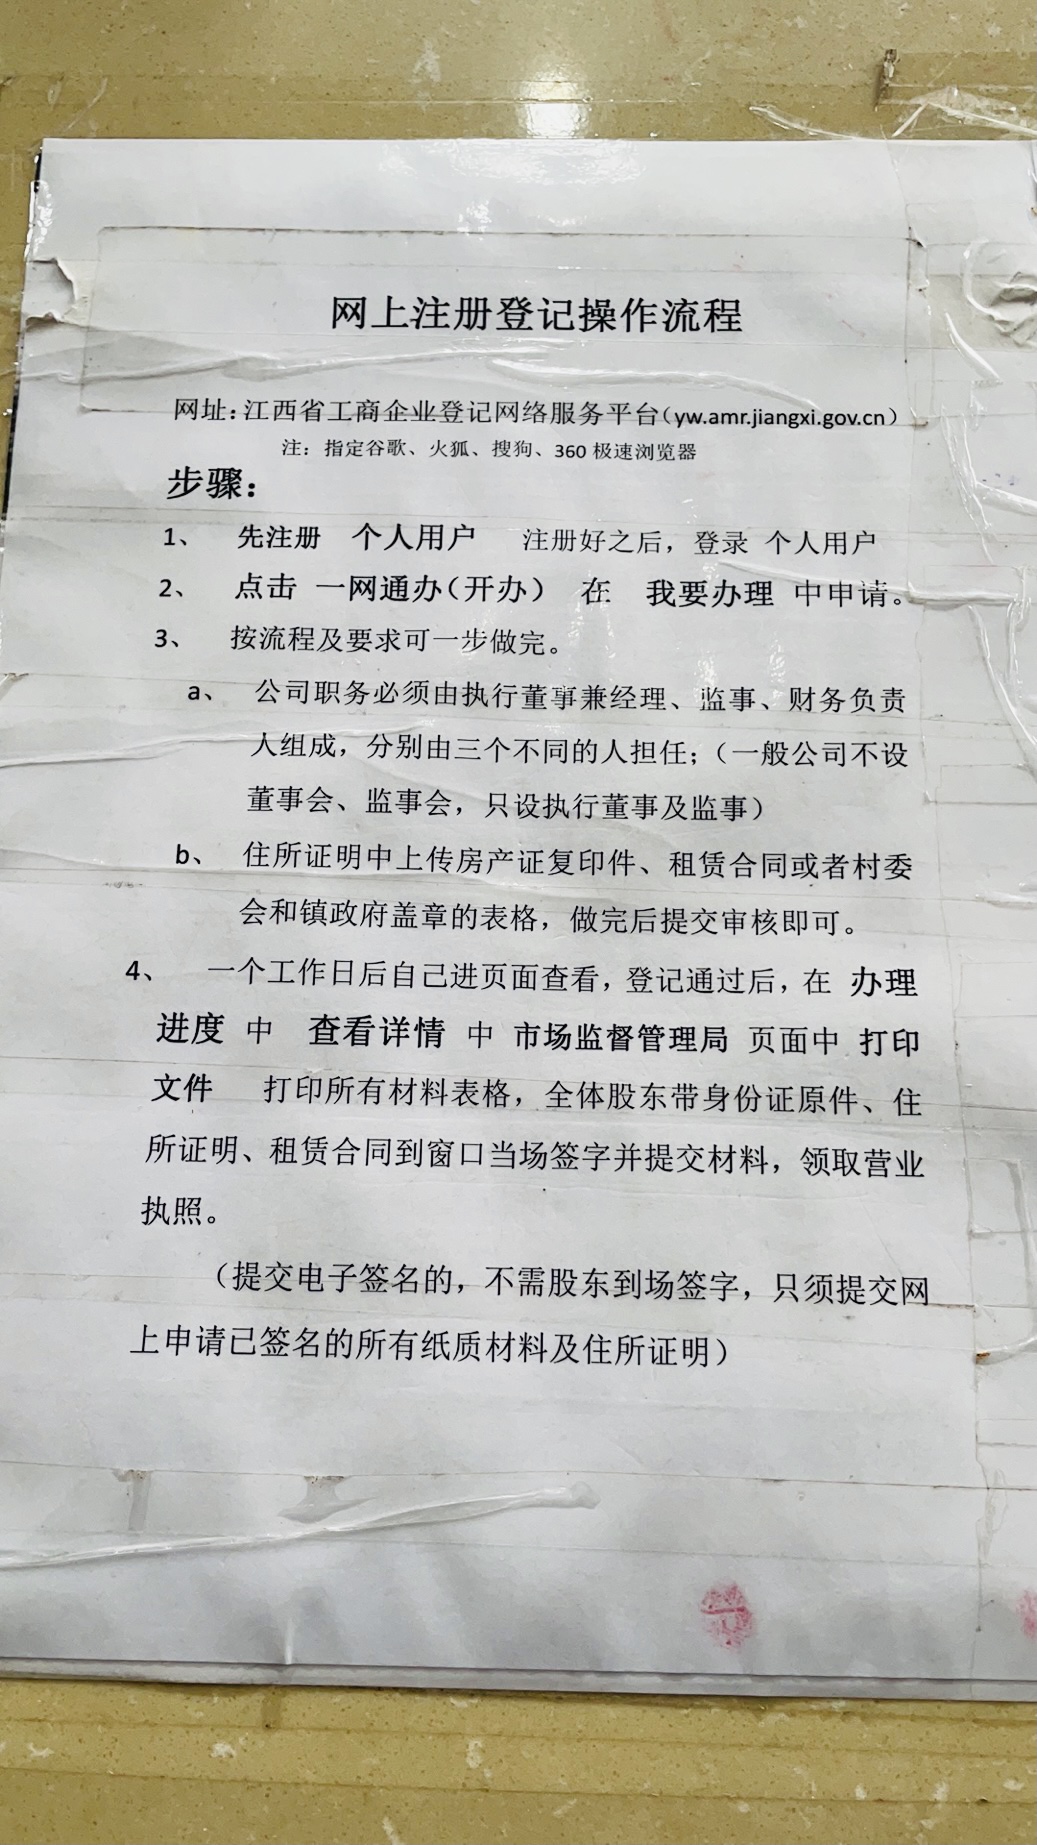 网上注册登记操作流程
网址：江西省工商企业登记网络服务平台（yw.amr.jiangxi.gov.cn）
注：指定谷歌、火狐、搜狗、360 极速浏览器
步骤：
1、 先注册 个人用户 注册好之后，登录 个人用户
2、 点击 一网通办（开办） 在 我要办理 中申请。
3、 按流程及要求可一步做完。
a、 公司职务必须由执行董事兼经理、监事、财务负责
人组成，分别由三个不同的人担任；（一般公司不设
董事会、监事会，只设执行董事及监事）
b、 住所证明中上传房产证复印件、租赁合同或者村委
会和镇政府盖章的表格，做完后提交审核即可。
4、 一个工作日后自己进页面查看，登记通过后，在 办理
进度 中 查看详情 中 市场监督管理局 页面中 打印
文件 打印所有材料表格，全体股东带身份证原件、住
所证明、租赁合同到窗口当场签字并提交材料，领取营业
执照。
（提交电子签名的，不需股东到场签字，只须提交网
上申请已签名的所有纸质材料及住所证明）